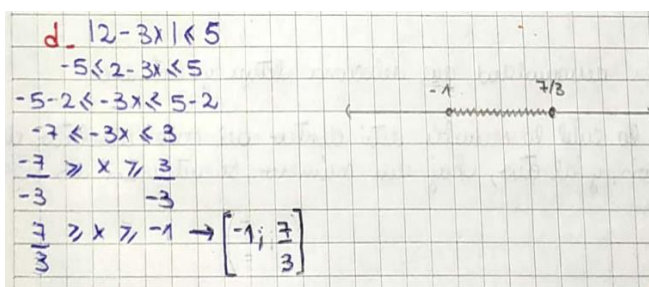 d_ |2-3x|≤5
-5≤2-3x≤5
-5-2≤-3x≤5-2
-7≤-3x≤3
-7/-3 ≥ x ≥ 3/-3
7/3 ≥ x ≥ -1 → [-1; 7/3]
-1 7/3